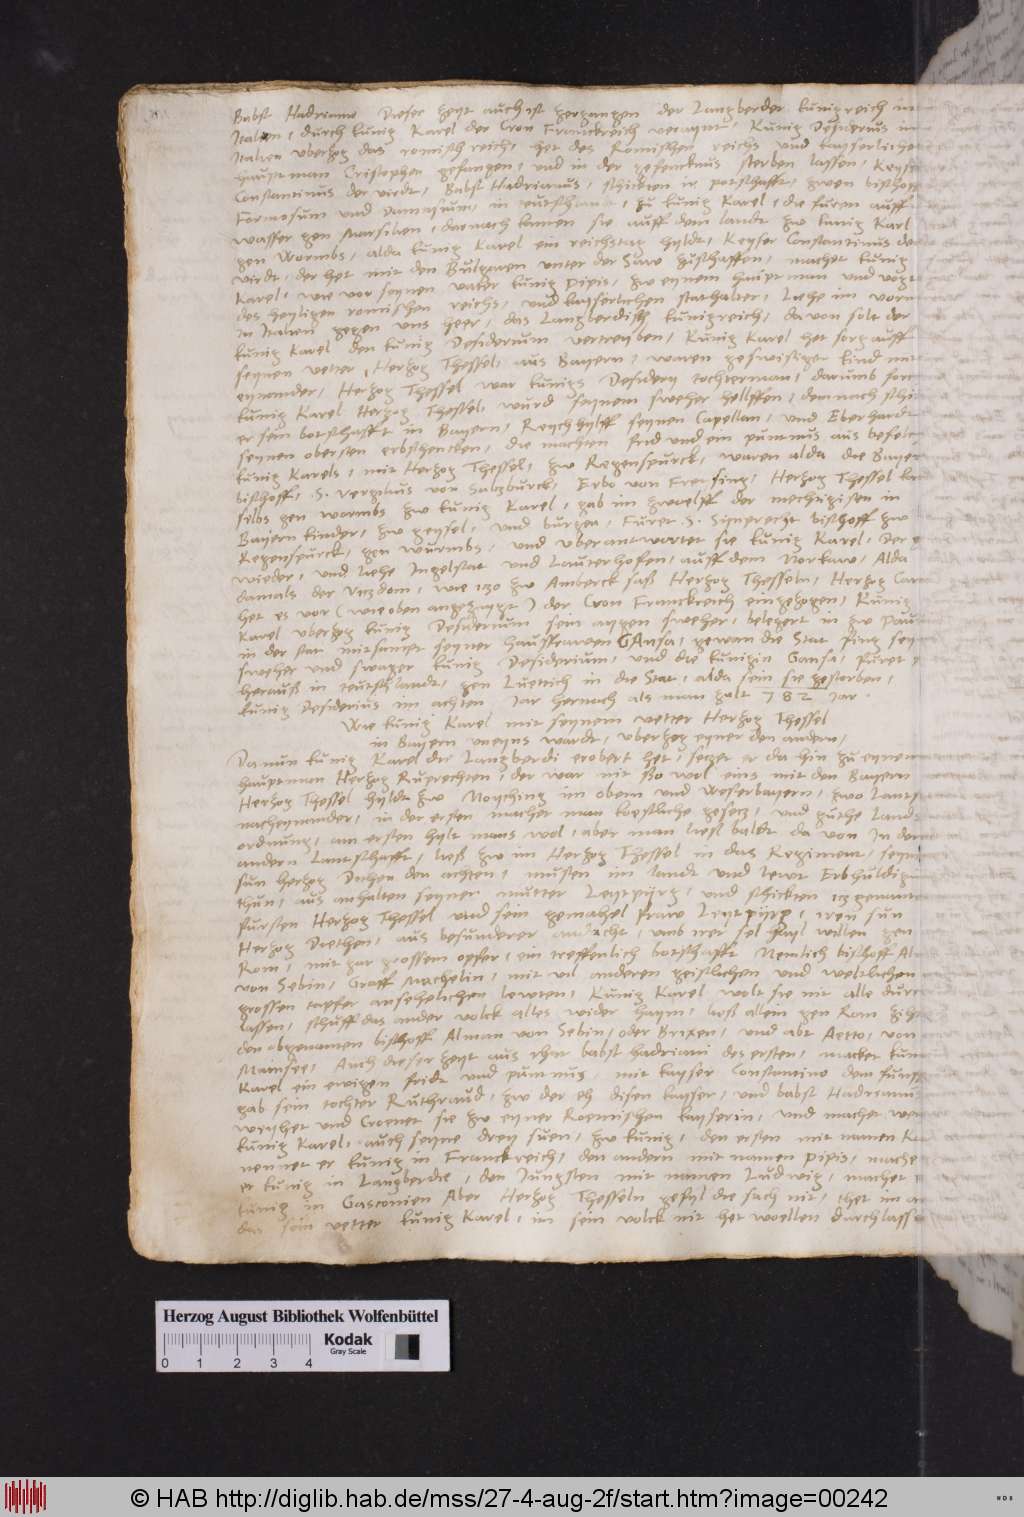 Babst Hadriano Dieser zeyt auch ist hergangen der Langberder kunigreich in
Italien, durch kunig Karel der Cron Franckreich veraynt, Kunig Desiderius in
Italien uberzog das romisch reich, het des Romischen reichs und kayserlicher
hauptman Cristophen gefangen, und in der gefencknus sterben lassen, Keyser
Constantinus der vierdt, Babst Hadrianus, schickten ir potschafft, zwen bischoff
Formosum und Damasum, in teutschlandt, zu kunig Karel, die furen auff
wasser gen Marsilien, darnach kamen sie auff dem landt zw kunig Karl
gen Wormbs, alda kunig Karel ein reichstag hyldt, Keyser Constantinus der
vierdt, der het mit den Bulgaren unter der Saw zuschaffen, machet kunig
Karel, wie vor seynen vater kunig Pipin, zw eynem hauptman und vogt
des heyligen romischen reichs, und kayserlichen stathalter, Liehe im vorn
in Italien gegen uns heer, das Langberdisch kunigreich, da von solt der
kunig Karel den kunig Desiderium vertreyben, Kunig Karel het sorg auff
seynen vetter, Herzog Thessel, aus Bayern, waren geswistriger kind mit
eynander, Herzog Thessel war kunigs Desidery tochterman, darumb forcht
kunig Karel Herzog Thessel, wurd seynem sweher helffen, demnach schi
er sein botschafft in Bayern, Reychhylff seynen Capellan, und Eberhardt
seynen obersten erbschencken, die machten frid und ein puntnus aus befelch
kunig Karels, mit Herzog Thessel, zw Regenspurck, waren alda die Bayer
bischoff, S. Vergilius von Salzburck, Erbo von Freysing, Herzog Thessel kam
selbs gen wormbs zw kunig Karel, gab im zwoelff der mechtigisten in
Bayern kinder, zw geysel, und burgen, Furet S. Synprecht bischoff zw
Regenspurck, gen wurmbs, und uberantwortet sie kunig Karel, Der g
wieder, und liehe Ingelstat und Lauterhofen, auff dem Norkaw, Alda
damals der Viczdom, wie iczo zw Amberck saß Herzog Thesseln, Herzog Carol
het es vor (wie oben angezaygt) der Cron Franckreich eingezogen, Kunig
Karel uberzog kunig Desiderium sein aygen sweher, belegert in zw Pau
in der stat mitsampt seyner hausfrawen GAnsa, gewan die Stat fing seyn
sweher und swager kunig Desiderium, und die kunigin Gansa, Furet s
herauß in teutschlandt, gen Luettich in die Stat, alda sein sie gestorben,
kunig Desiderius im achten Jar hernach als man zalt 782 Jar.
Wie kunig Karel mit seynem vetter Herzog Thessel
in Bayern uneyns wardt, uberzog eyner den andern,
Da nun kunig Karel die Langberdi erobert het, setzet er da hin zu eynem
hauptman Herzog Ruprechten, der war nit sso wol eins mit den Bayern
Herzog Thessel hyldt zw Noyching im obern und Nyderbayern, zwo lants
nacheynander, in der ersten machet man koestliche gesecz, und guthe Lands
ordnung, am ersten hylt mans wol, aber man ließ baldt da von In der
andern Lantschafft, ließ zw im Herzog Thessel in das Regiment, seyn
sun Herzog Diethen den achten, musten im landt und lewt Erbhuldig
thun, aus anhalten seyner mutter Leytpyrg, und schickten iczgenanten
fursten Herzog Thessel und sein gemahel fraw Leytpyrg, iren sun
Herzog Diethen, aus besunderer andacht, umb irer sel hayl willen gen
Rom, mit gar grossem opfer, ein treffenlich botschafft Nemlich bischoff Al
von Sebin, Graff Machelin, mit vil anderen geistlichen und weltlichen
grossen tapfer ansehelichen lewten, Kunig Karel wolt sie nit alle durch
lassen, schuff das ander volck alles wider haym, ließ allein gen Rom zihe
den obgenanten bischoff Alman von Sebin, oder Brixen, und abt Aetto, von
Mainsee, Auch dieser zeyt aus rhat babst hadriani des ersten, machet kun
Karel ein ewigen fridt und puntnus, mit kayser Constantino dem funff
gab sein tochter Ruthraud, zw der eh disen kayser, und babst Hadrianus
weyhet und Croenet sie zw eyner Roemischen kayserin, und machet we
kunig Karel, auch seyne drey suen, zw kunig, den ersten mit namen Ka
nennet er kunig in Franckreich, den andern mit namen Pipin, mache
er kunig in Langberdie, den Jungsten mit namen Ludwig, machet
kunig in Gasconien Aber Herzog Thesseln gefyl die sach nit, thet im an
das sein vetter kunig Karel, im sein volck nit het woellen durchlasse
Herzog August Bibliothek Wolfenbüttel
Kodak
Gray Scale
0 1 2 3 4
© HAB http://diglib.hab.de/mss/27-4-aug-2f/start.htm?image=00242